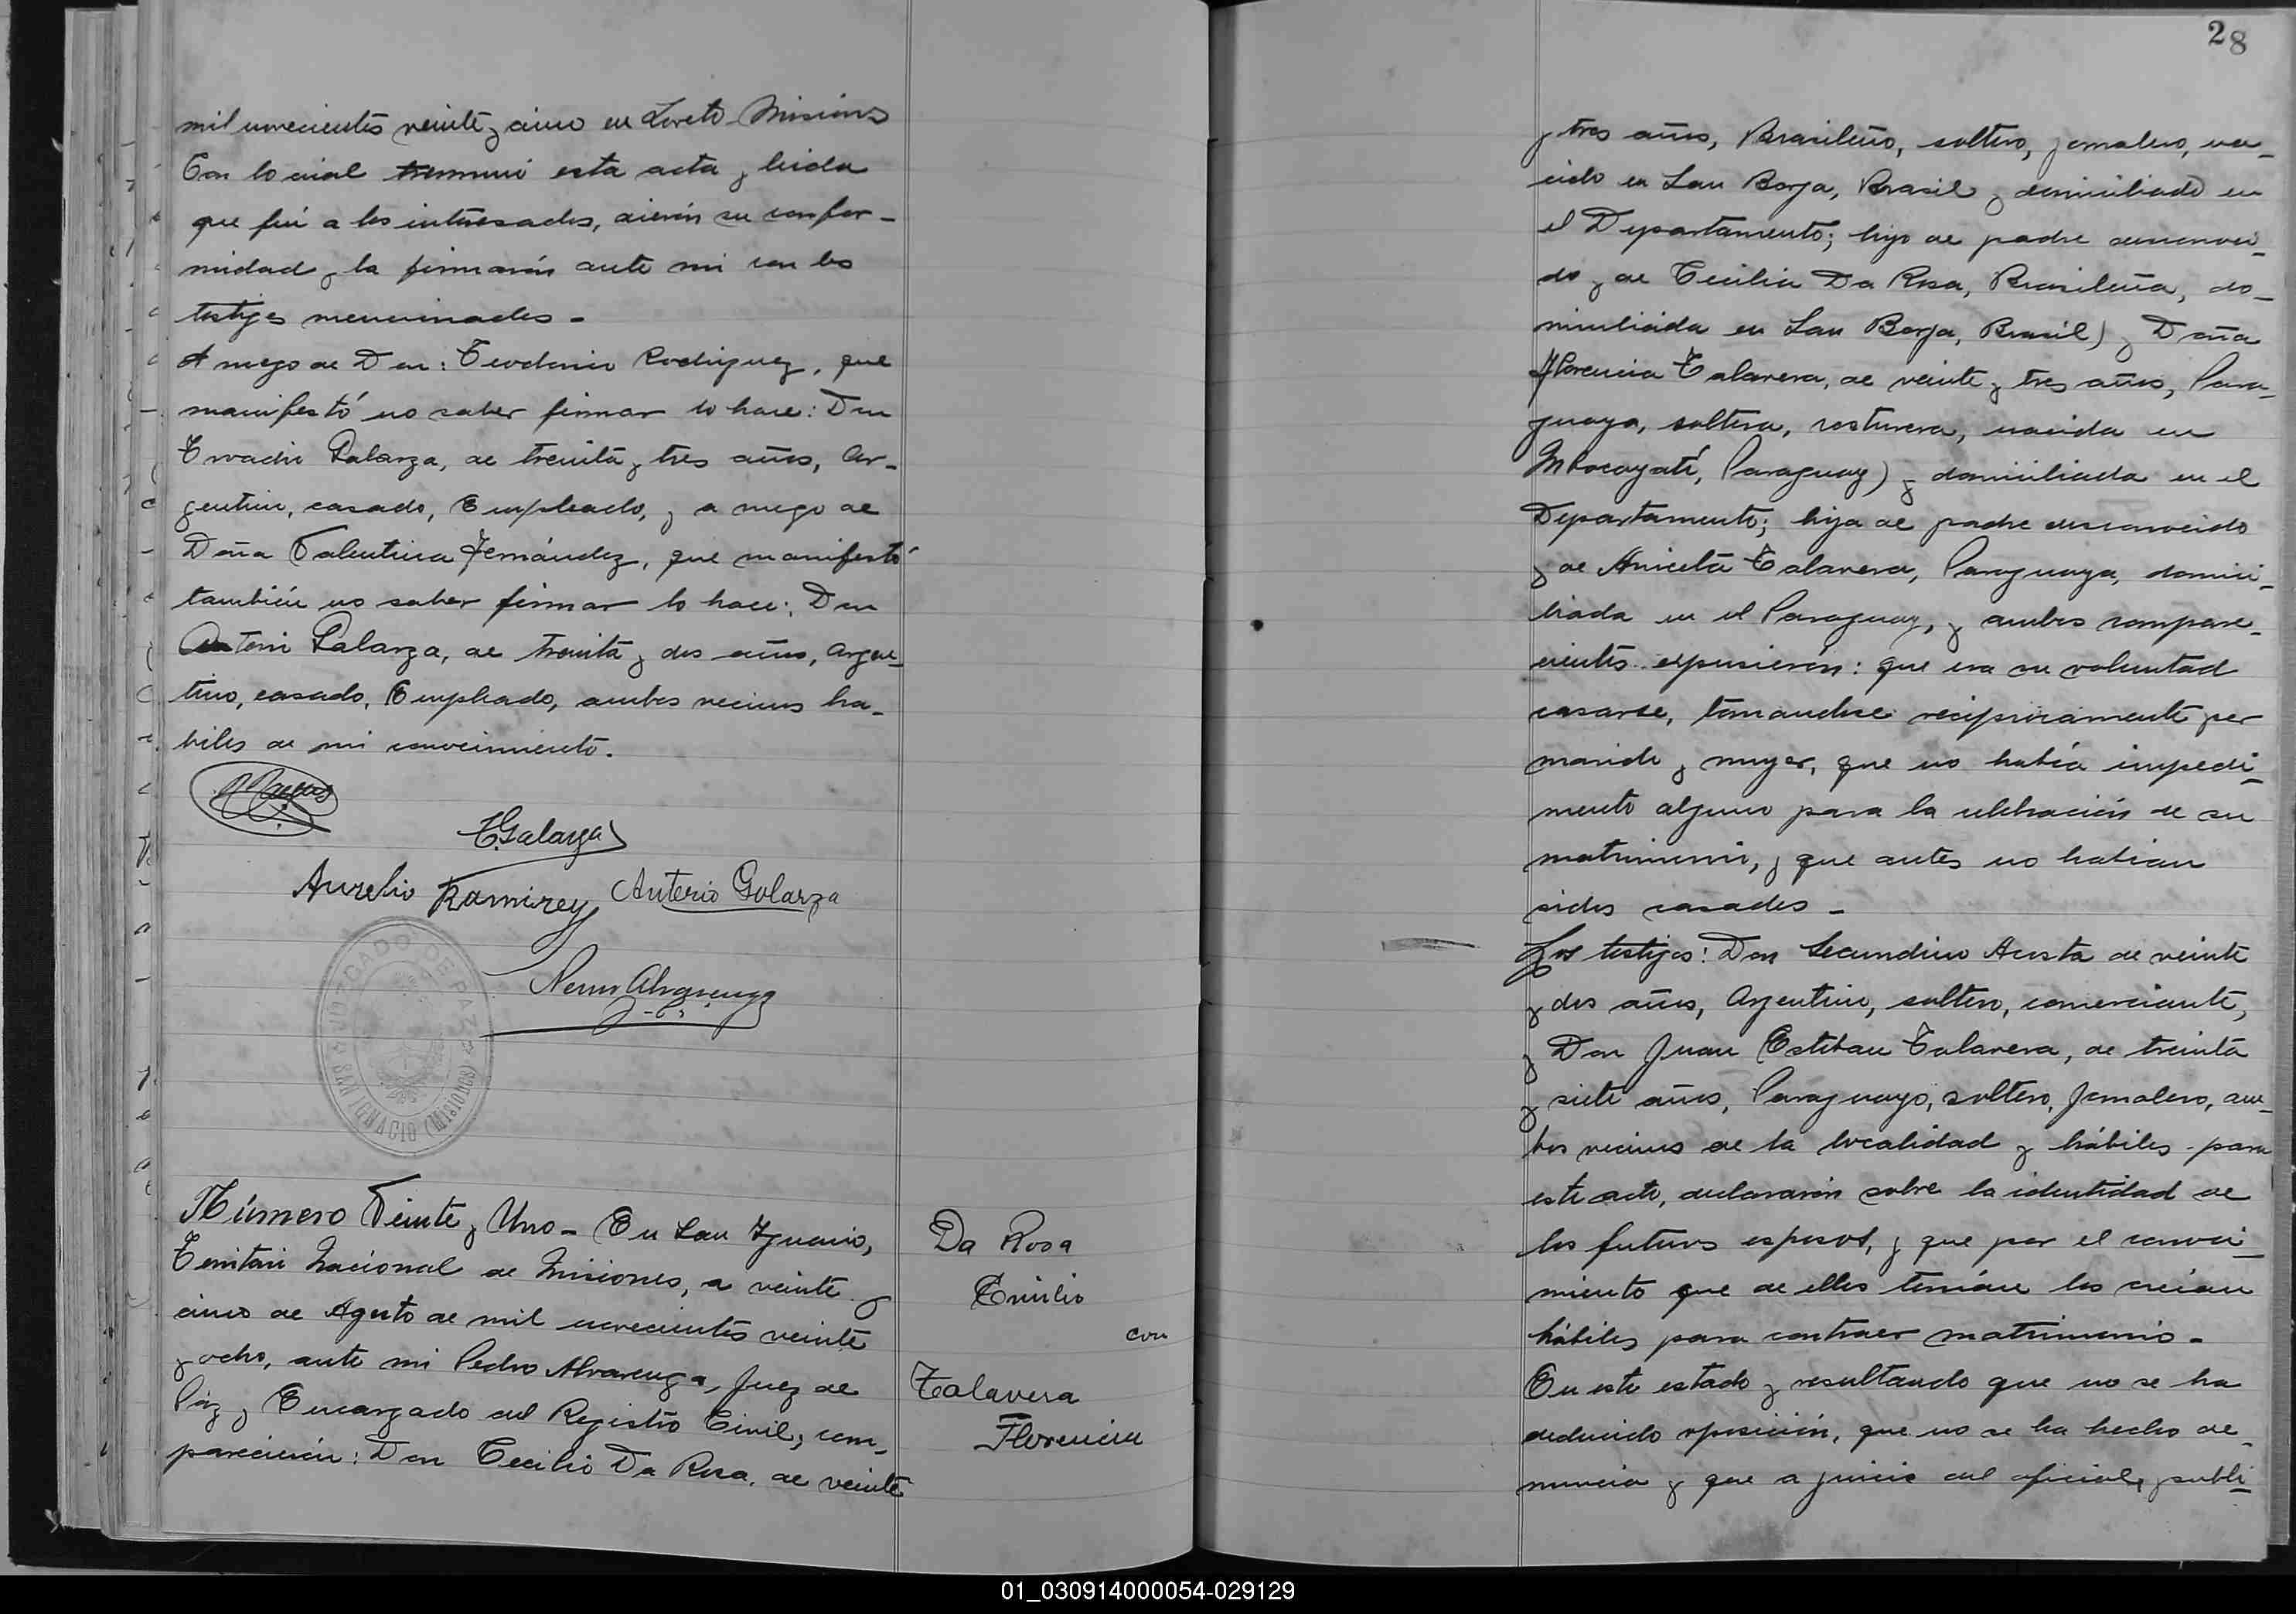 mil novecientos veinte y cinco en Loreto Misiones
Con lo cual termino esta acta y leida
que fué a los interesados, dieron su confor-
midad y la firmarón ante mi con los
testigos mencionados -
A ruego de Don: Teodorio Rodriguez, que
manifestó no saber firmar lo hace: Don
Galarza, de treinta y tres años, Ar-
gentino, casado, Empleado, y a ruego de
Doña Valentina Fernández, que manifestó
también no saber firmar lo hace: Don
Anterio Galarza, de treinta y dos años, Argen-
tino, casado, Empleado, ambos vecinos ha-
biles de mi conocimiento.
Galarza
Aurelio Ramirez Anterio Galarza
Alvarenga
JUZGADO DE PAZ
SAN IGNACIO (MISIONES)
Número Veinte y Uno - En San Ygnacio,
Territorio Nacional de Misiones, a veinte y
cinco de Agosto de mil novecientos veinte
y ocho, ante mi Pedro Alvarenga, Juez de
Páz y Encargado del Registro Civil, com-
parecierón: Don Cecilio Da Rosa, de veinte
Da Rosa
Emilio
con
Talavera
Florencia
28
y tres años, Brasileño, soltero, jornalero, na-
cido en San Borja, Brasil y domiciliado en
el Departamento; hijo de padre desconoci-
do y de Cecilia Da Rosa, Brasileña, do-
miciliada en San Borja, Brasil) y Doña
Florencia Talavera, de veinte y tres años, Para-
guaya, soltera, costurera, nacida en
Mbocayatí, Paraguay) y domiciliada en el
Departamento; hija de padre desconocido
y de Aniceta Talavera, Paraguaya, domici-
liada en el Paraguay, y ambos compare-
cientes expusierón: que era su voluntad
casarse, tomandose reciprocamente por
marido y mujer, que no había impedi-
mento alguno para la celebración de su
matrimonio, y que antes no habian
sidos casados -
Los testigos: Don Secundino Acosta de veinte
y dos años, Argentino, soltero, comerciante,
y Don Juan Esteban Talavera, de treinta
y siete años, Paraguayo, soltero, Jornalero, am-
bos vecinos de la localidad y hábiles para
este acto, declararón sobre la identidad de
los futuros esposos, y que por el conoci-
miento que de ellos tenían los creian
hábiles para contraer matrimonio -
En este estado y resultando que no se ha
deducido oposición, que no se ha hecho de-
nuncia y que a juicio del oficial, publi-
01_030914000054-029129